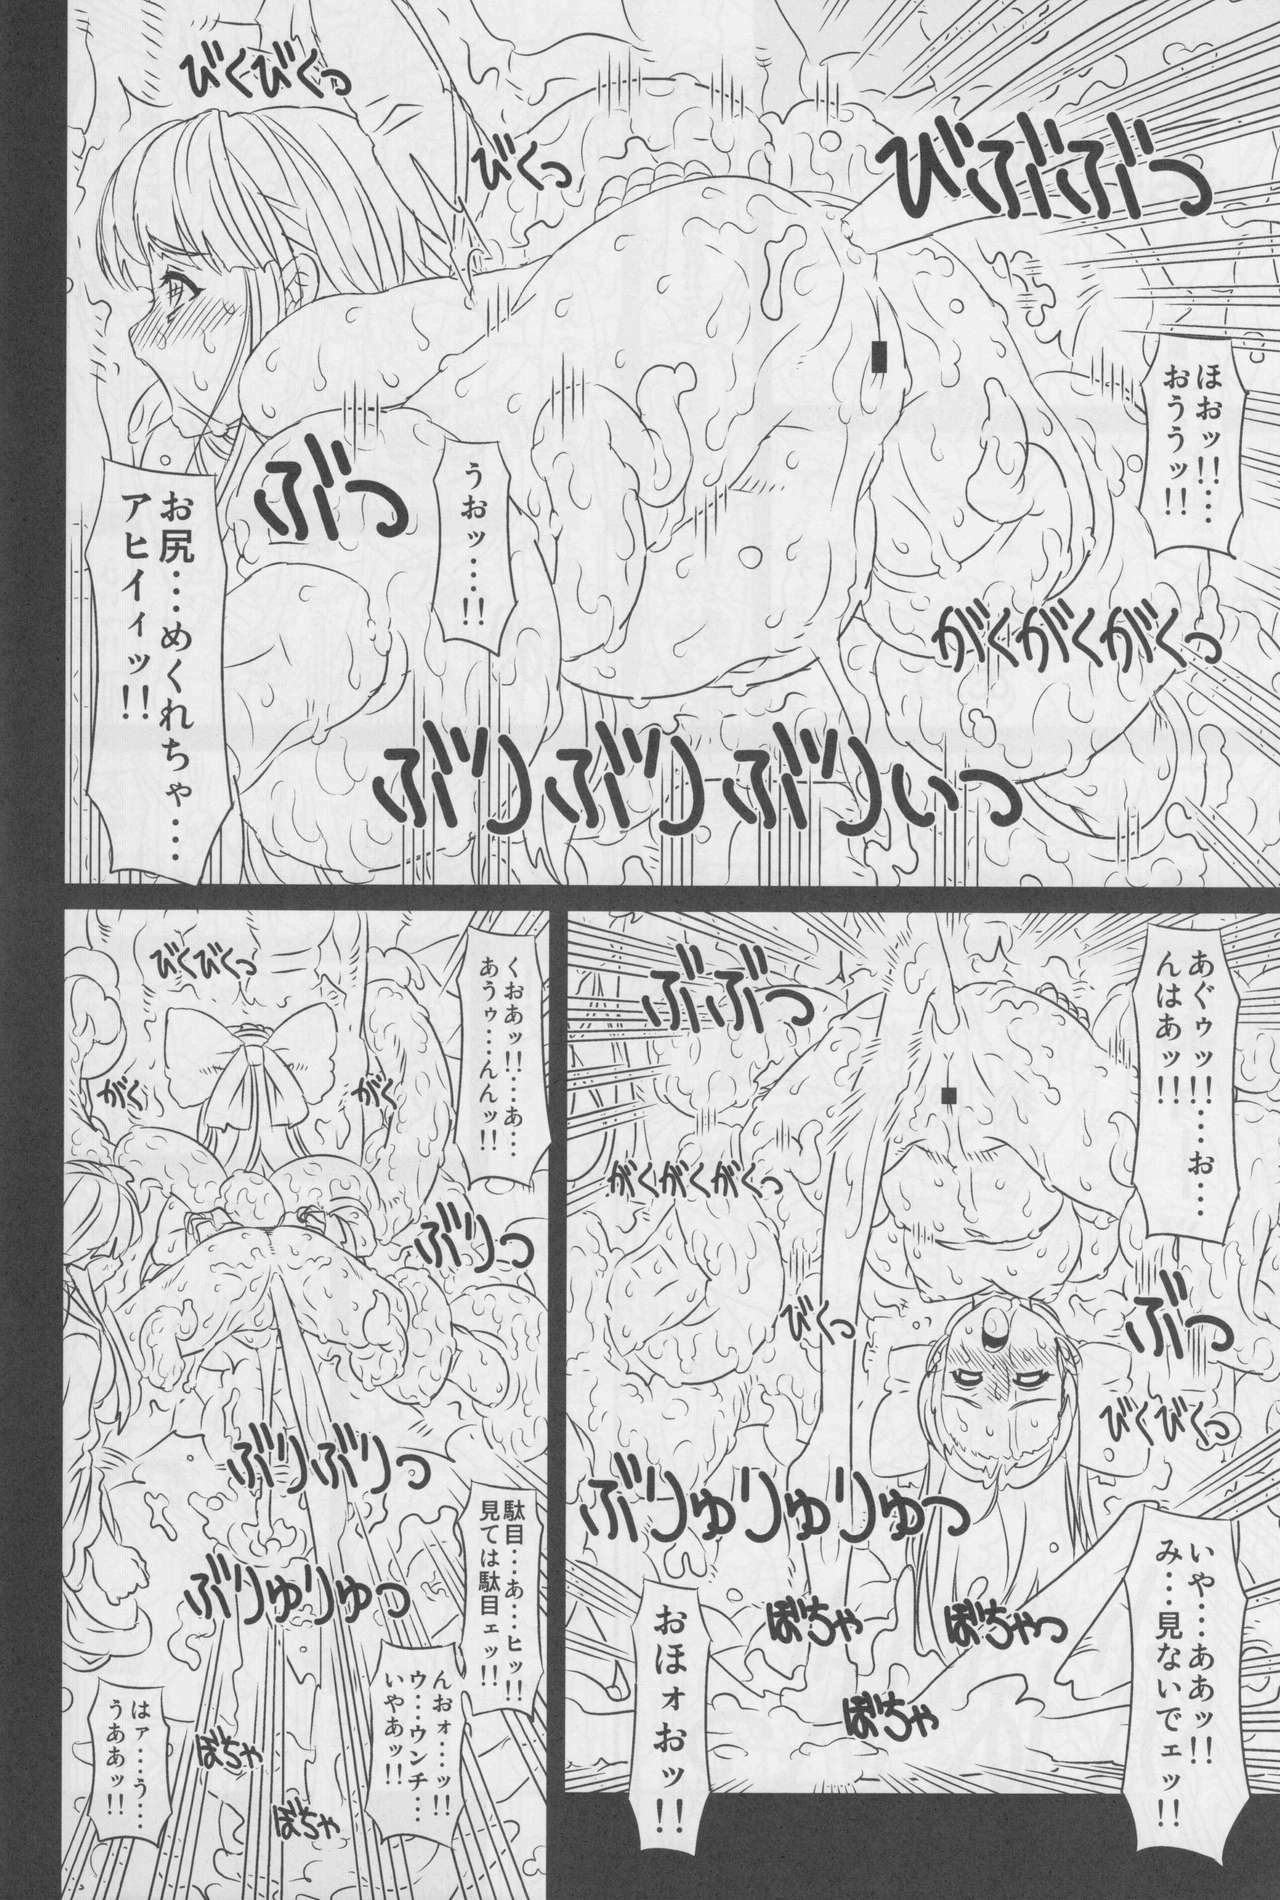 びくびくっ
びくっ
びぶぶぶっ
ほおッ!!…
おううッ!!
うおッ…!!
ぶっ
お尻…めくれちゃ…
アヒイィッ!!
がくがくがくっ
ぶりぶりぶりぃっ
あぐゥッ!!…お…
んはあッ!!
ぶぶぶっ
がくがくがくっ
びくっ
ぶっ
びくびくっ
ぶりゅりゅりゅっ
いや…ああッ!!
み…見ないでェッ!!
ぼちゃ
ぼちゃっ
ぼちゃ
おほォおッ!!
くおあッ!!…あ…
あうゥ…んんッ!!
びくびくっ
がく
がく
ぶりっ
ぶりぶりっ
駄目…あ…ヒッ!!
見ては駄目ェッ!!
ぶりゅりゅっ
んおォ…ッ!!
ウ…ウンチ…
いやあッ!!
ぼちゃ
ぼちゃ
はァ…う…
うああッ!!